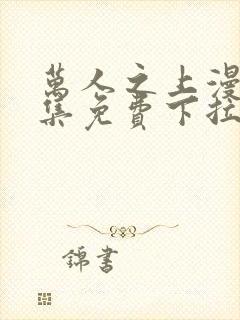 萬人之上漫
集免費下拉
錦書